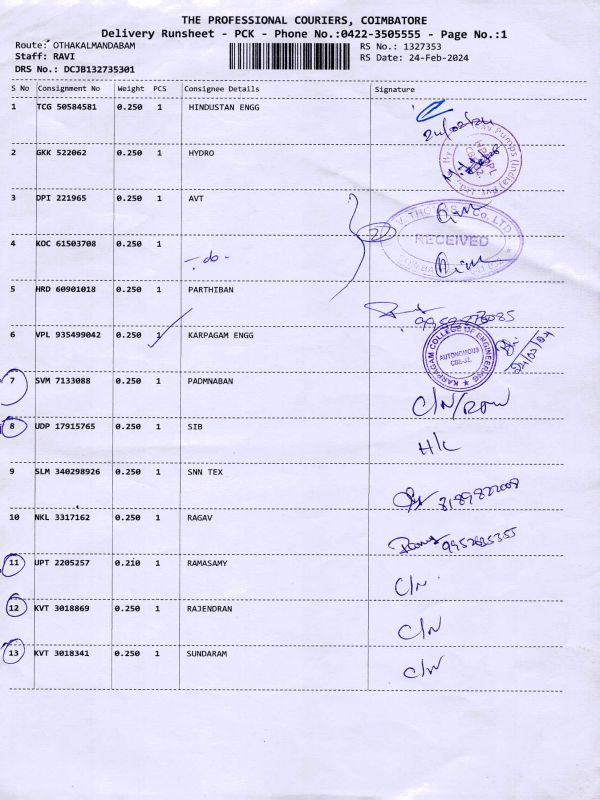 THE PROFESSIONAL COURIERS, COIMBATORE
Delivery Runsheet - PCK - Phone No.:0422-3505555 - Page No.:1
Route: OTHAKALMANDABAM RS No.: 1327353
Staff: RAVI RS Date: 24-Feb-2024
DRS No.: DCJB132735301
S No Consignment No Weight PCS Consignee Details Signature
1 TCG 50584581 0.250 1 HINDUSTAN ENGG
24/02/24
2 GKK 522062 0.250 1 HYDRO
Pumps (India) Pvt. Ltd.
3 DPI 221965 0.250 1 AVT
Co. LTD.
RECEIVED
4 KOC 61503708 0.250 1 -do-
5 HRD 60901018 0.250 1 PARTHIBAN
6 VPL 935499042 0.250 1 KARPAGAM ENGG
KARPAGAM COLLEGE OF ENGINEERING
AUTONOMOUS
CBE-32.
7 SVM 7133088 0.250 1 PADMNABAN C/N/ROW
8 UDP 17915765 0.250 1 SIB H/L
9 SLM 340298926 0.250 1 SNN TEX 8189822008
10 NKL 3317162 0.250 1 RAGAV 9952685355
11 UPT 2205257 0.210 1 RAMASAMY C/N
12 KVT 3018869 0.250 1 RAJENDRAN C/N
13 KVT 3018341 0.250 1 SUNDARAM C/N